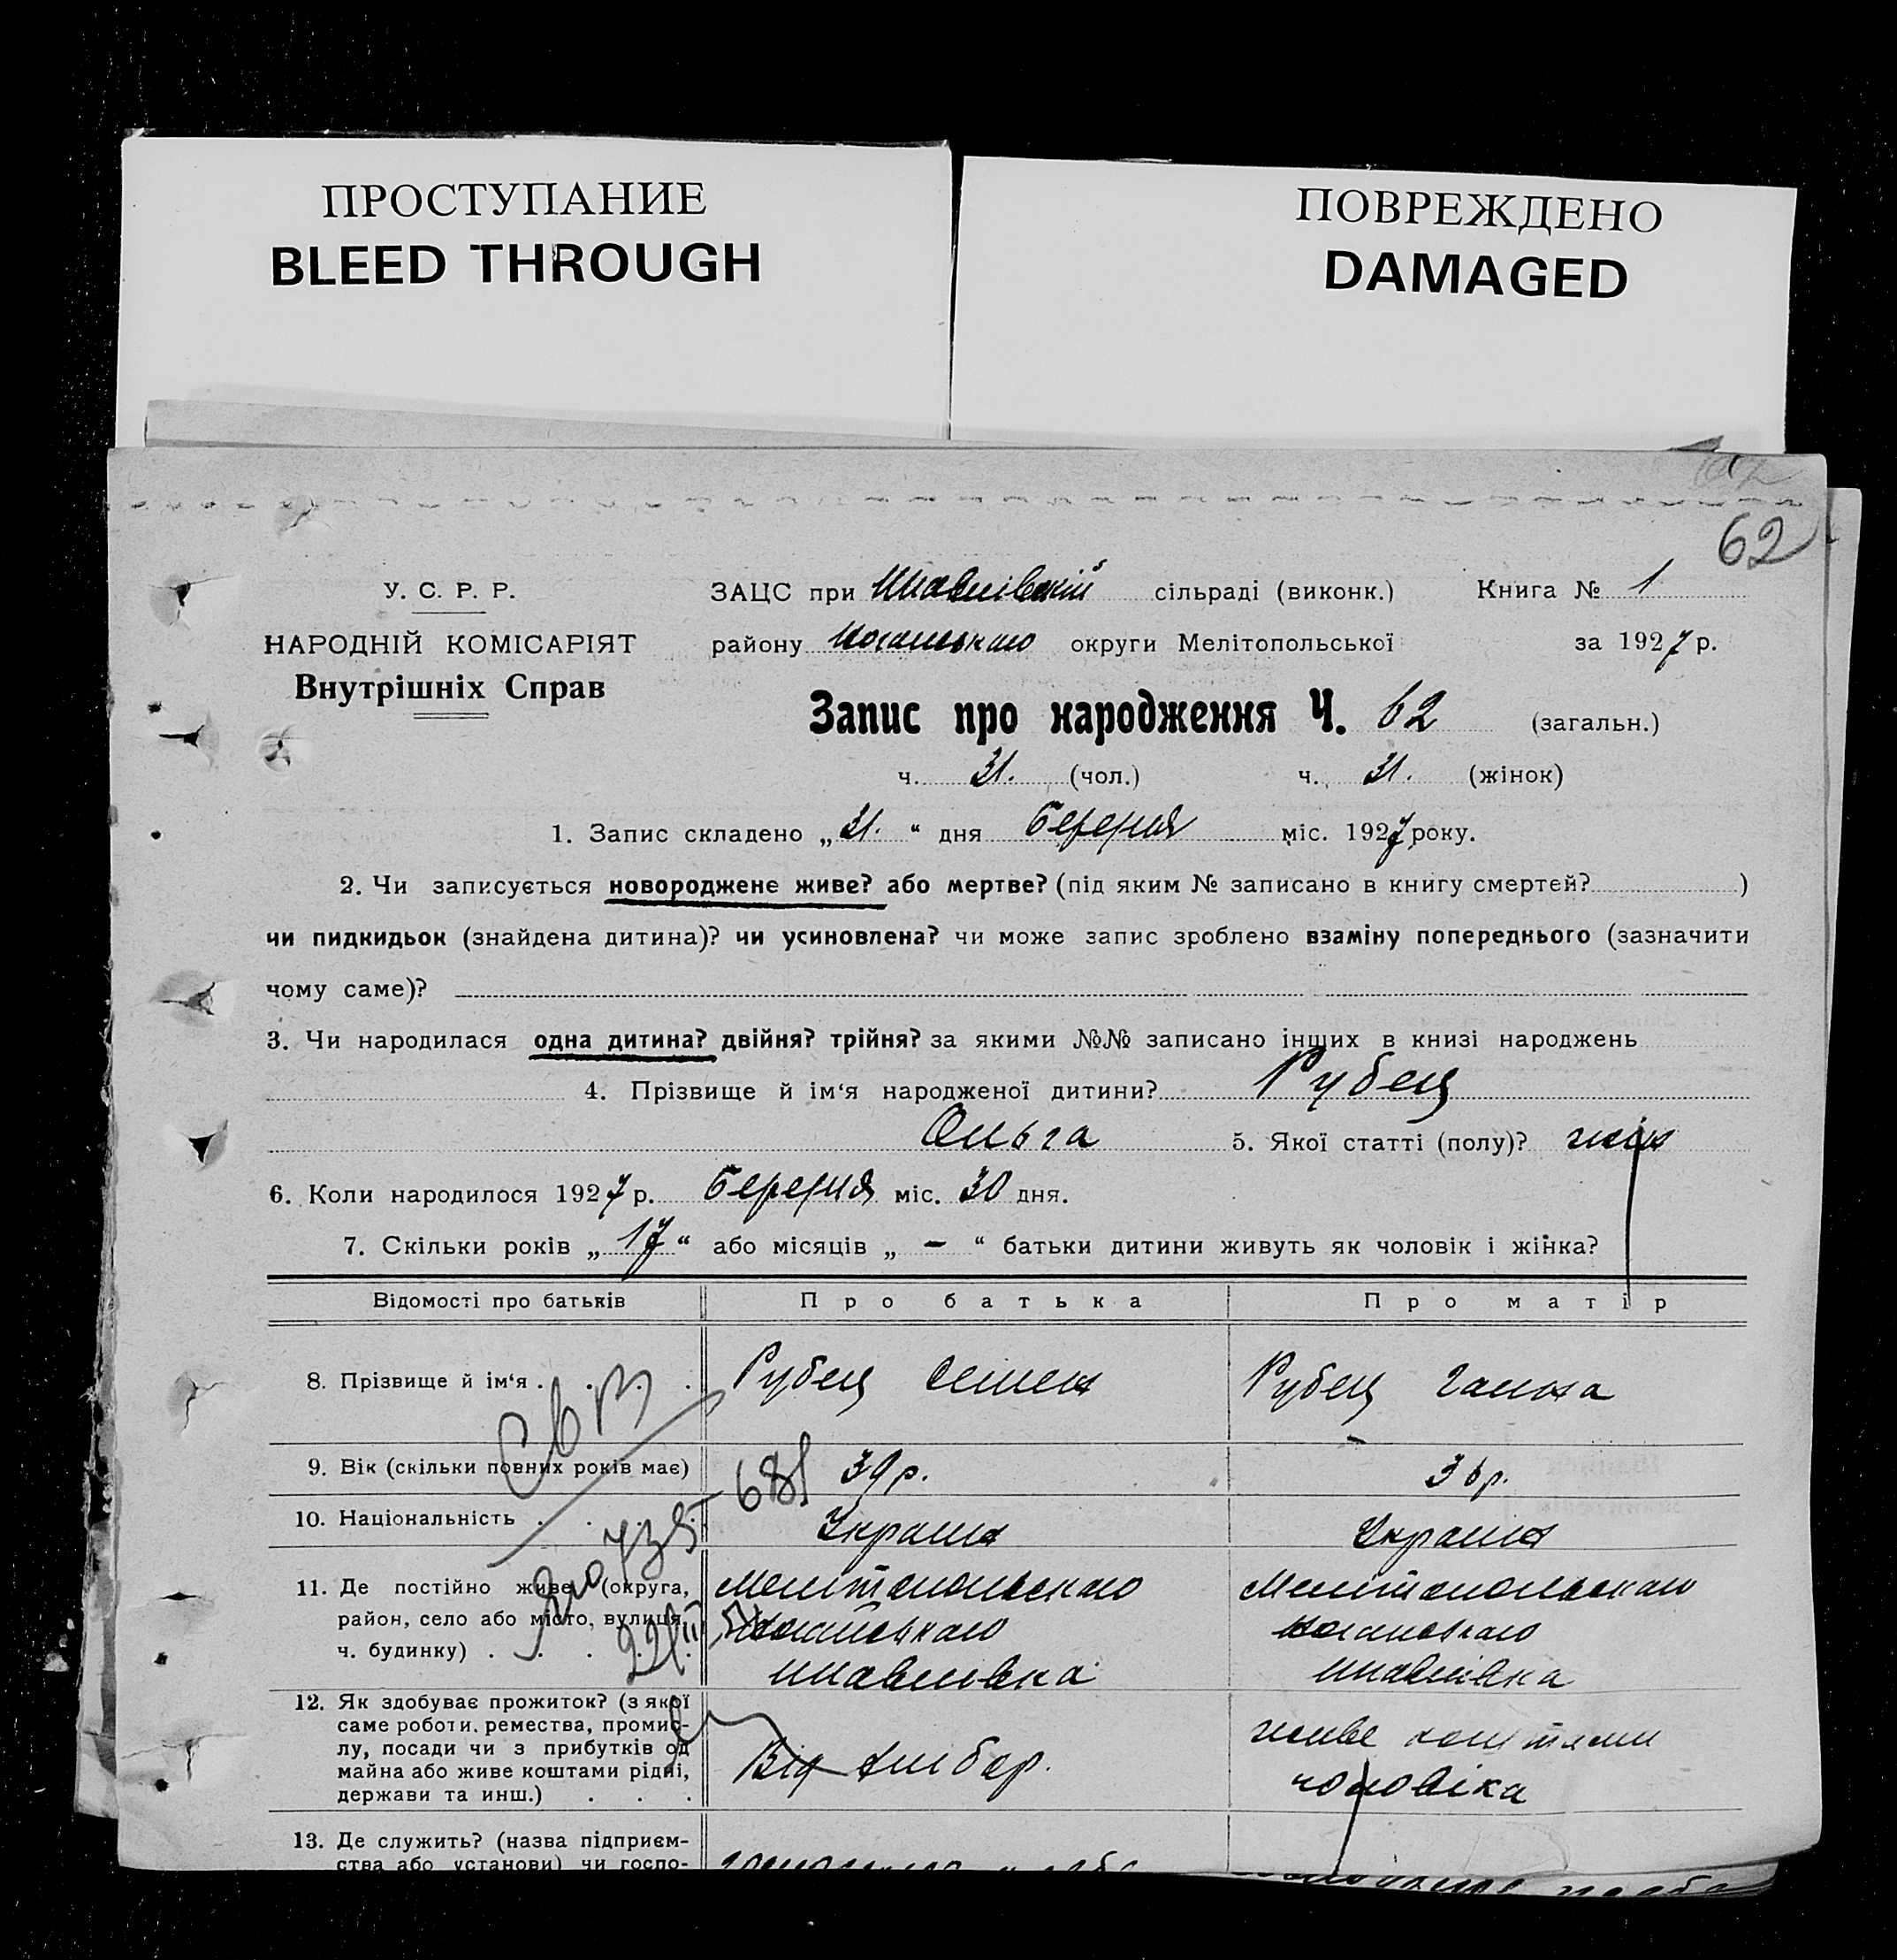 ПРОСТУПАНИЕ
BLEED THROUGH
ПОВРЕЖДЕНО
DAMAGED
62
У. С. Р. Р.
НАРОДНІЙ КОМІСАРІЯТ
Внутрішніх Справ
ЗАЦС при сільраді (виконк.) Книга № 1
району округи Мелітопольської за 1927 р.
Запис про народження Ч. 62 (загальн.)
ч. 31. (чол.) ч. 31. (жінок)
1. Запис складено „31.“ дня березня міс. 1927 року.
2. Чи записується новороджене живе? або мертве? (під яким № записано в книгу смертей? )
чи пидкидьок (знайдена дитина)? чи усиновлена? чи може запис зроблено взаміну попереднього (зазначити
чому саме)?
3. Чи народилася одна дитина? двійня? трійня? за якими №№ записано інщих в книзі народжень
4. Прізвище й ім‘я народженої дитини? Рубец
Ольга 5. Якої статті (полу)? жін
6. Коли народилося 1927 р. березня міс. 30 дня.
7. Скільки років „17“ або місяців „ — “ батьки дитини живуть як чоловік і жінка?
Відомості про батьків Про батька Про матір
8. Прізвище й ім‘я . . . . Рубец Семен Рубец Ганна
9. Вік (скільки повних років має) 39 р. 36 р.
10. Національність . . . . Україн Україн
11. Де постійно живе (округа,
район, село або місто, вулиця,
ч. будинку) . . . . .
Мелитопольскаго
Шавливка
Мелитопольскаго
Шавлівка
12. Як здобуває прожиток? (з якої
саме роботи, ремества, промис-
лу, посади чи з прибутків од
майна або живе коштами рідні,
держави та инш.) . . .
Від хлібор.
живе коштами
чоловіка
13. Де служить? (назва підприєм-
ства або установи) чи госпо-